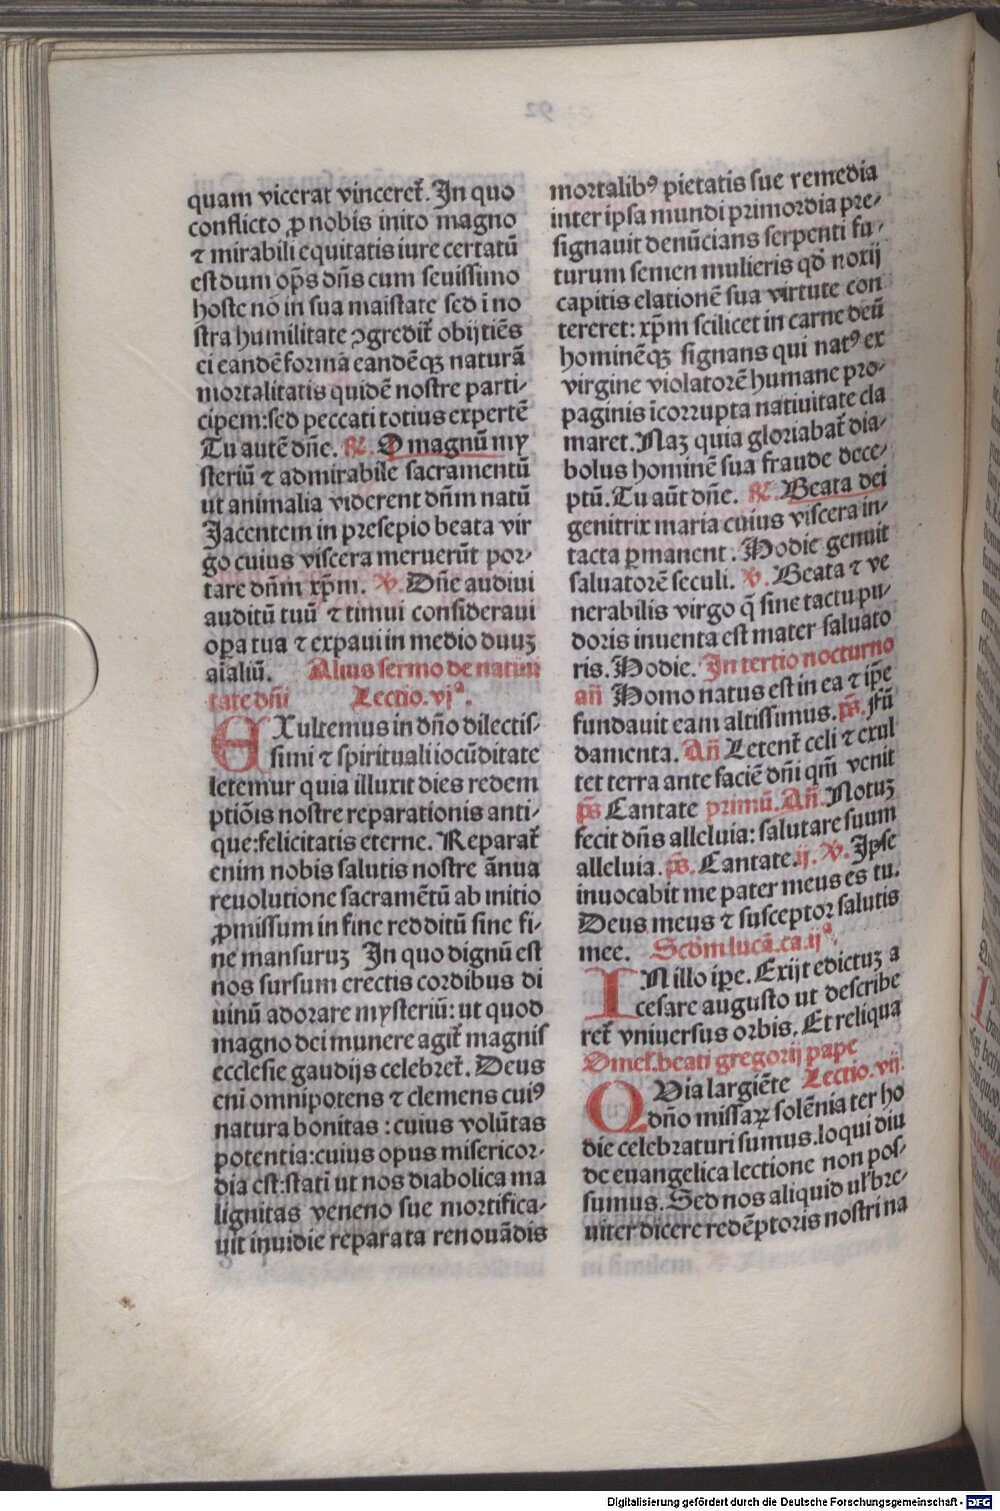 quam vicerat vinceret̃. In quo
conflicto ꝓ nobis inito magno
⁊ mirabili equitatis iure certatũ
est dum op̃s dñs cum seuissimo
hoste nõ in sua maistate sed ĩ no
stra humilitate ꝯgredit̃ obijtiẽs
ei eandẽ formã eandẽqꝫ naturã
mortalitatis quidẽ nostre parti⸗
cipem: sed peccati totius expertẽ
Tu autẽ dñe. ℟. O magnũ my
steriũ ⁊ admirabile sacramentũ
ut animalia viderent dñm natũ
Jacentem in presepio beata vir
go cuius viscera meruerũt por⸗
tare dñm xp̃m. ℣. Dñe audiui
auditũ tuũ ⁊ timui consideraui
oꝑa tua ⁊ expaui in medio duuꝫ
aĩaliũ. Alius sermo de natiui
tate dñi Lectio. vjᵃ.
EXultemus in dño dilectis⸗
simi ⁊ spirituali iocũditate
letemur quia illuxit dies redem
ptiõis nostre reparationis anti⸗
que: felicitatis eterne. Reparat̃
enim nobis salutis nostre ãnua
reuolutione sacramẽtũ ab initio
ꝓmissum in fine redditũ sine fi⸗
ne mansuruꝫ In quo dignũ est
nos sursum erectis cordibus di
uinũ adorare mysteriũ: ut quod
magno dei munere agit̃ magnis
ecclesie gaudijs celebret̃. Deus
eni omnipotens ⁊ clemens cuiꝰ
natura bonitas: cuius volũtas
potentia: cuius opus misericor⸗
dia est: stati ut nos diabolica ma
lignitas veneno sue mortifica⸗
uit inuidie reparata renouãdis
mortalibꝰ pietatis sue remedia
inter ipsa mundi primordia pre⸗
signauit denũcians serpenti fu⸗
turum semen mulieris qđ noxij
capitis elationẽ sua virtute con
tereret: xp̃m scilicet in carne deũ
hominẽqꝫ signans qui natꝰ ex
virgine violatorẽ humane pro⸗
paginis ĩcorrupta natiuitate cla
maret. Naꝫ quia gloriabat̃ dia⸗
bolus hominẽ sua fraude dece⸗
ptũ. Tu aũt dñe. ℟. Beata dei
genitrix maria cuius viscera in⸗
tacta ꝑmanent. Hodie genuit
saluatorẽ seculi. ℣. Beata ⁊ ve
nerabilis virgo q̃ sine tactu pu⸗
doris inuenta est mater saluato
ris. Hodie. In tertio nocturno
añ Homo natus est in ea ⁊ ip̃e
fundauit eam altissimus. p̃s. Fũ
damenta. Añ Letent̃ celi ⁊ exul
tet terra ante faciẽ dñi qm̃ venit
p̃s Cantate primũ. Añ. Notuꝫ
fecit dñs alleluia: salutare suum
alleluia. p̃s. Cantate. ij. ℣. Ipse
inuocabit me pater meus es tu.
Deus meus ⁊ susceptor salutis
mee. Scd̃m lucã. ca. ijᵃ.
IN illo tp̃e. Exijt edictuꝫ a
cesare augusto ut describe
ret̃ vniuersus orbis. Et reliqua
Omel̃. beati gregorij pape
QVia largiẽte Lectio. vij.
dño missaꝝ solẽnia ter ho
die celebraturi sumus. loqui diu
de euangelica lectione non pos⸗
sumus. Sed nos aliquid ul̃ bre⸗
uiter dicere redẽptoris nostri na